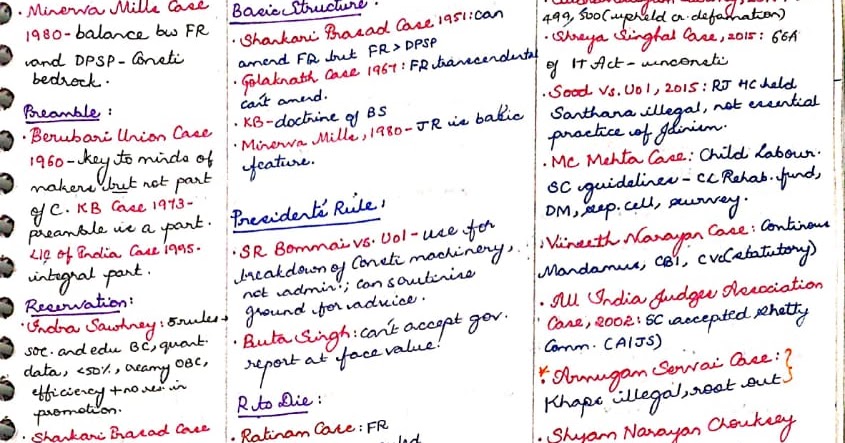 . Minerva Mills Case
1980 - balance bw FR
and DPSP - Consti
bedrock.
Preamble :
. Berubari Union Case
1960 - key to minds of
makers but not part
of C. KB Case 1973 -
preamble is a part.
LIC of India Case 1995 -
integral part.
Reservation:
. Indra Sawhney : 5 rules →
soc. and edu BC, quant.
data, <50%, creamy OBC,
efficiency + no res in
promotion.
. Shankari Prasad Case
Basic Structure :
. Shankari Prasad Case 1951 : can
amend FR but FR > DPSP
. Golaknath Case 1967 : FR transcendental
can't amend.
. KB - doctrine of BS
. Minerva Mills, 1980 - JR is basic
feature.
President's Rule :
. SR Bommai vs. UoI - use for
breakdown of Consti machinery,
not admin; can scutinise
ground for advice.
. Buta Singh : can't accept gov.
report at face value.
R to Die :
. Ratinam Case : FR
499, 500 (upheld cr. defamation)
. Shreya Singhal Case, 2015 : 66A
of IT Act - unconsti
. Sood Vs. UoI, 2015 : RJ HC held
Santhara illegal, not essential
practice of Jainism.
. MC Mehta Case : Child Labour.
SC guidelines - CL Rehab. fund,
DM, sep. cell, survey.
. Vineeth Narayan Case : Continous
Mandamus, CBI, CVC (statutory)
. All India Judges Association
Case, 2002 : SC accepted Shetty
Comm. (AIJS)
* . Arumugan Servai Case :
Khaps illegal, root out
. Shyam Narayan Chouksey